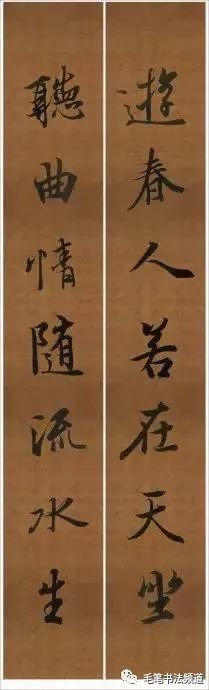 遊春人若在天坐
聽曲情随流水生
毛笔书法频道